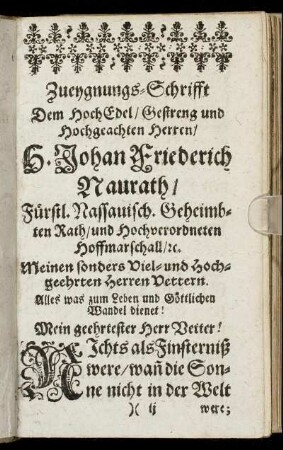 Zueygnungs-Schrifft
Dem HochEdel/ Gestreng und
Hochgeachten Herren/
H. Johan Friederich
Naurath/
Fürstl. Nassauisch. Geheimb-
ten Rath/ und Hochverordneten
Hoffmarschall/ ꝛc.
Meinen sonders Viel- und Hoch-
geehrten Herren Vettern.
Alles was zum Leben und Göttlichen
Wandel dienet!
Mein geehrtester Herr Vetter!
NIchts als Finsterniß
were/ wañ die Son-
ne nicht in der Welt
)( ij were;